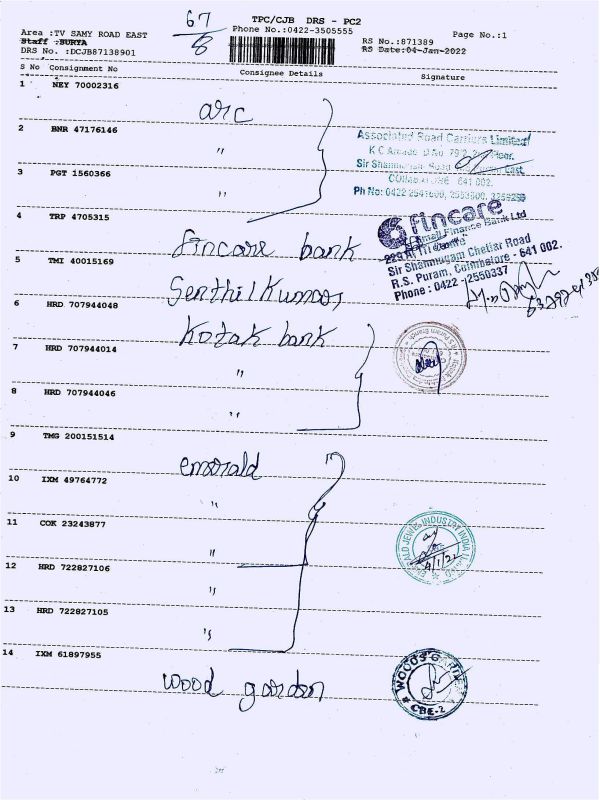 67
8
TPC/CJB DRS - PC2
Area :TV SAMY ROAD EAST
Phone No.:0422-3505555
Page No.:1
Staff :SURYA
RS No.:871389
DRS No. :DCJB87138901
RS Date:04-Jan-2022
S No Consignment No
Consignee Details
Signature
1 NEY 70002316
arc
2 BNR 47176146
"
Associated Road Carriers Limited
3 PGT 1560366
"
641 002.
Ph No: 0422 2541600,
4 TRP 4705315
fincare bank
fincare
Small Finance Bank Ltd
Sir Shanmugam Chettar Road
R.S. Puram, Coimbatore - 641 002.
Phone : 0422 - 2550337
5 TMI 40015169
Senthil Kumar
6 HRD 707944048
Kotak bank
7 HRD 707944014
"
8 HRD 707944046
"
9 TMG 200151514
emerald
10 IXM 49764772
"
11 COK 23243877
"
EMERALD JEWEL INDUSTRY INDIA LTD.
4/1/22
12 HRD 722827106
"
13 HRD 722827105
"
14 IXM 61897955
wood garden
WOODS GARDEN
CBE-2